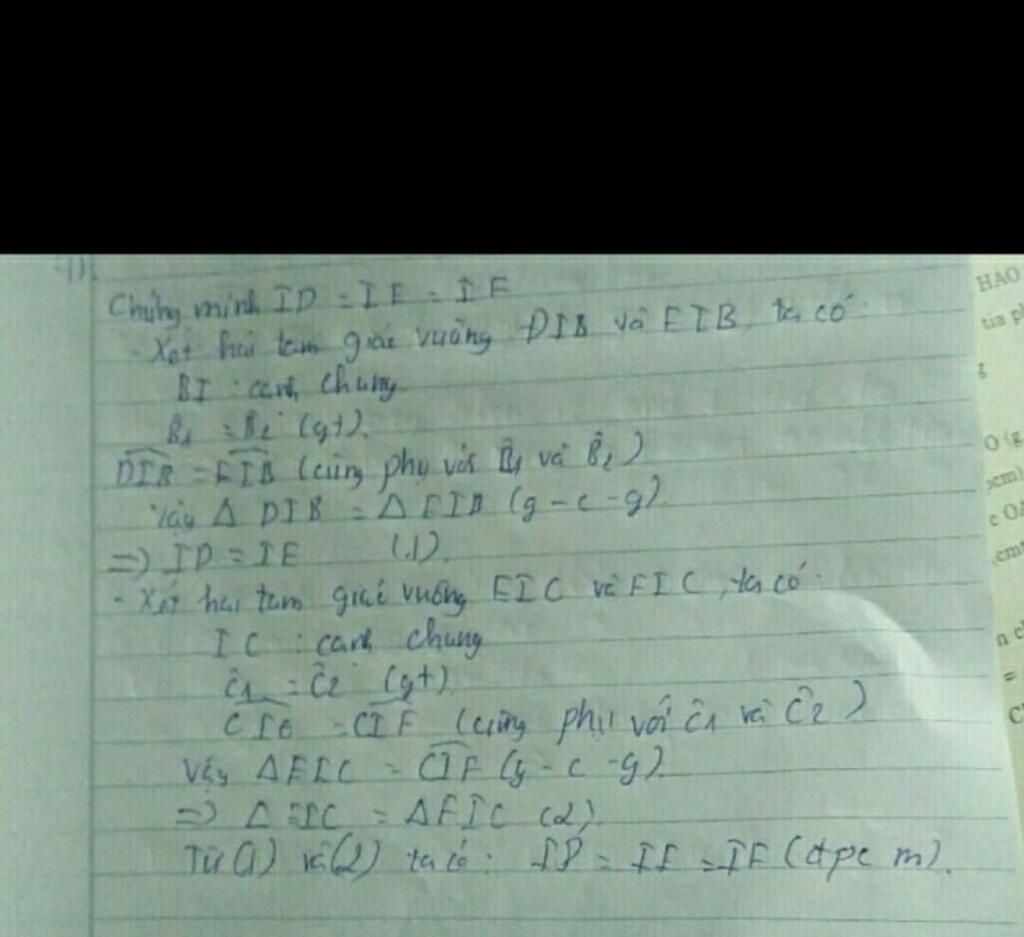 Chứng minh ID = IE = IF
- Xét hai tam giác vuông DIB và EIB, ta có:
BI : cạnh chung
B̂1 = B̂2 (gt).
DIB = EIB (cùng phụ với B̂1 và B̂2)
Vậy Δ DIB = Δ EIB (g - c - g).
=> ID = IE (1).
- Xét hai tam giác vuông EIC và FIC, ta có:
IC : cạnh chung
Ĉ1 = Ĉ2 (gt)
= CIF (cùng phụ với Ĉ1 và Ĉ2)
Vậy ΔEIC = CIF (g - c - g).
=> Δ EIC = ΔFIC (2).
Từ (1) và (2) ta có: ID = IE = IF (đpcm).
HAO
tia p
g
O (g
cm)
c O
cm
n c
=
C